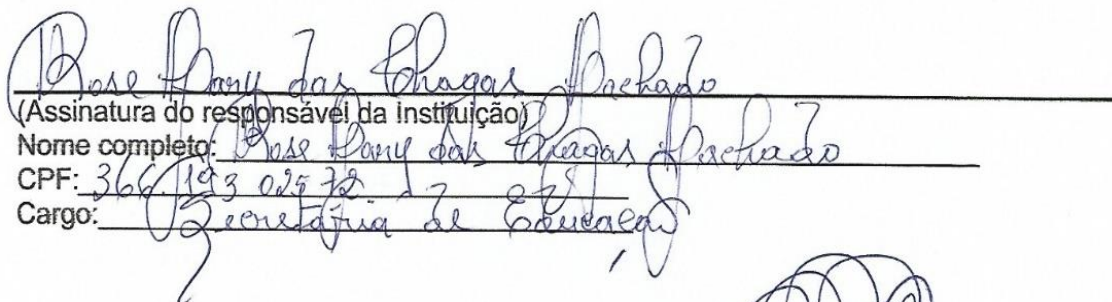 Rose Mary das Chagas Machado
(Assinatura do responsável da Instituição)
Nome completo: Rose Mary das Chagas Machado
CPF: 366.193 025 72
Cargo: Secretária de Educação